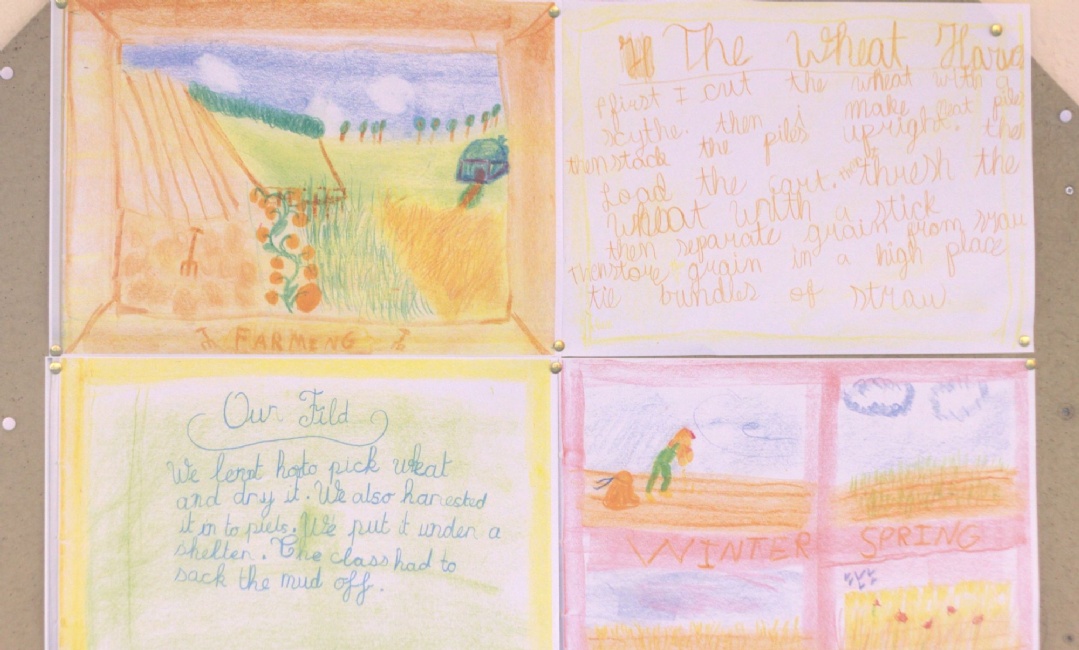 FARMING
The Wheat Harv
first I cut the wheat with a
scythe. then i make neat piles
then stack the piles upright. then
Load the cart. thresh the
wheat with a stick
then separate grain from straw
Then store grain in a high place
tie bundles of straw
Our Fild
We lernt hoto pick wheat
and dry it. We also harested
it in to piels. We put it under a
shelter. The class had to
sack the mud off.
WINTER
SPRING